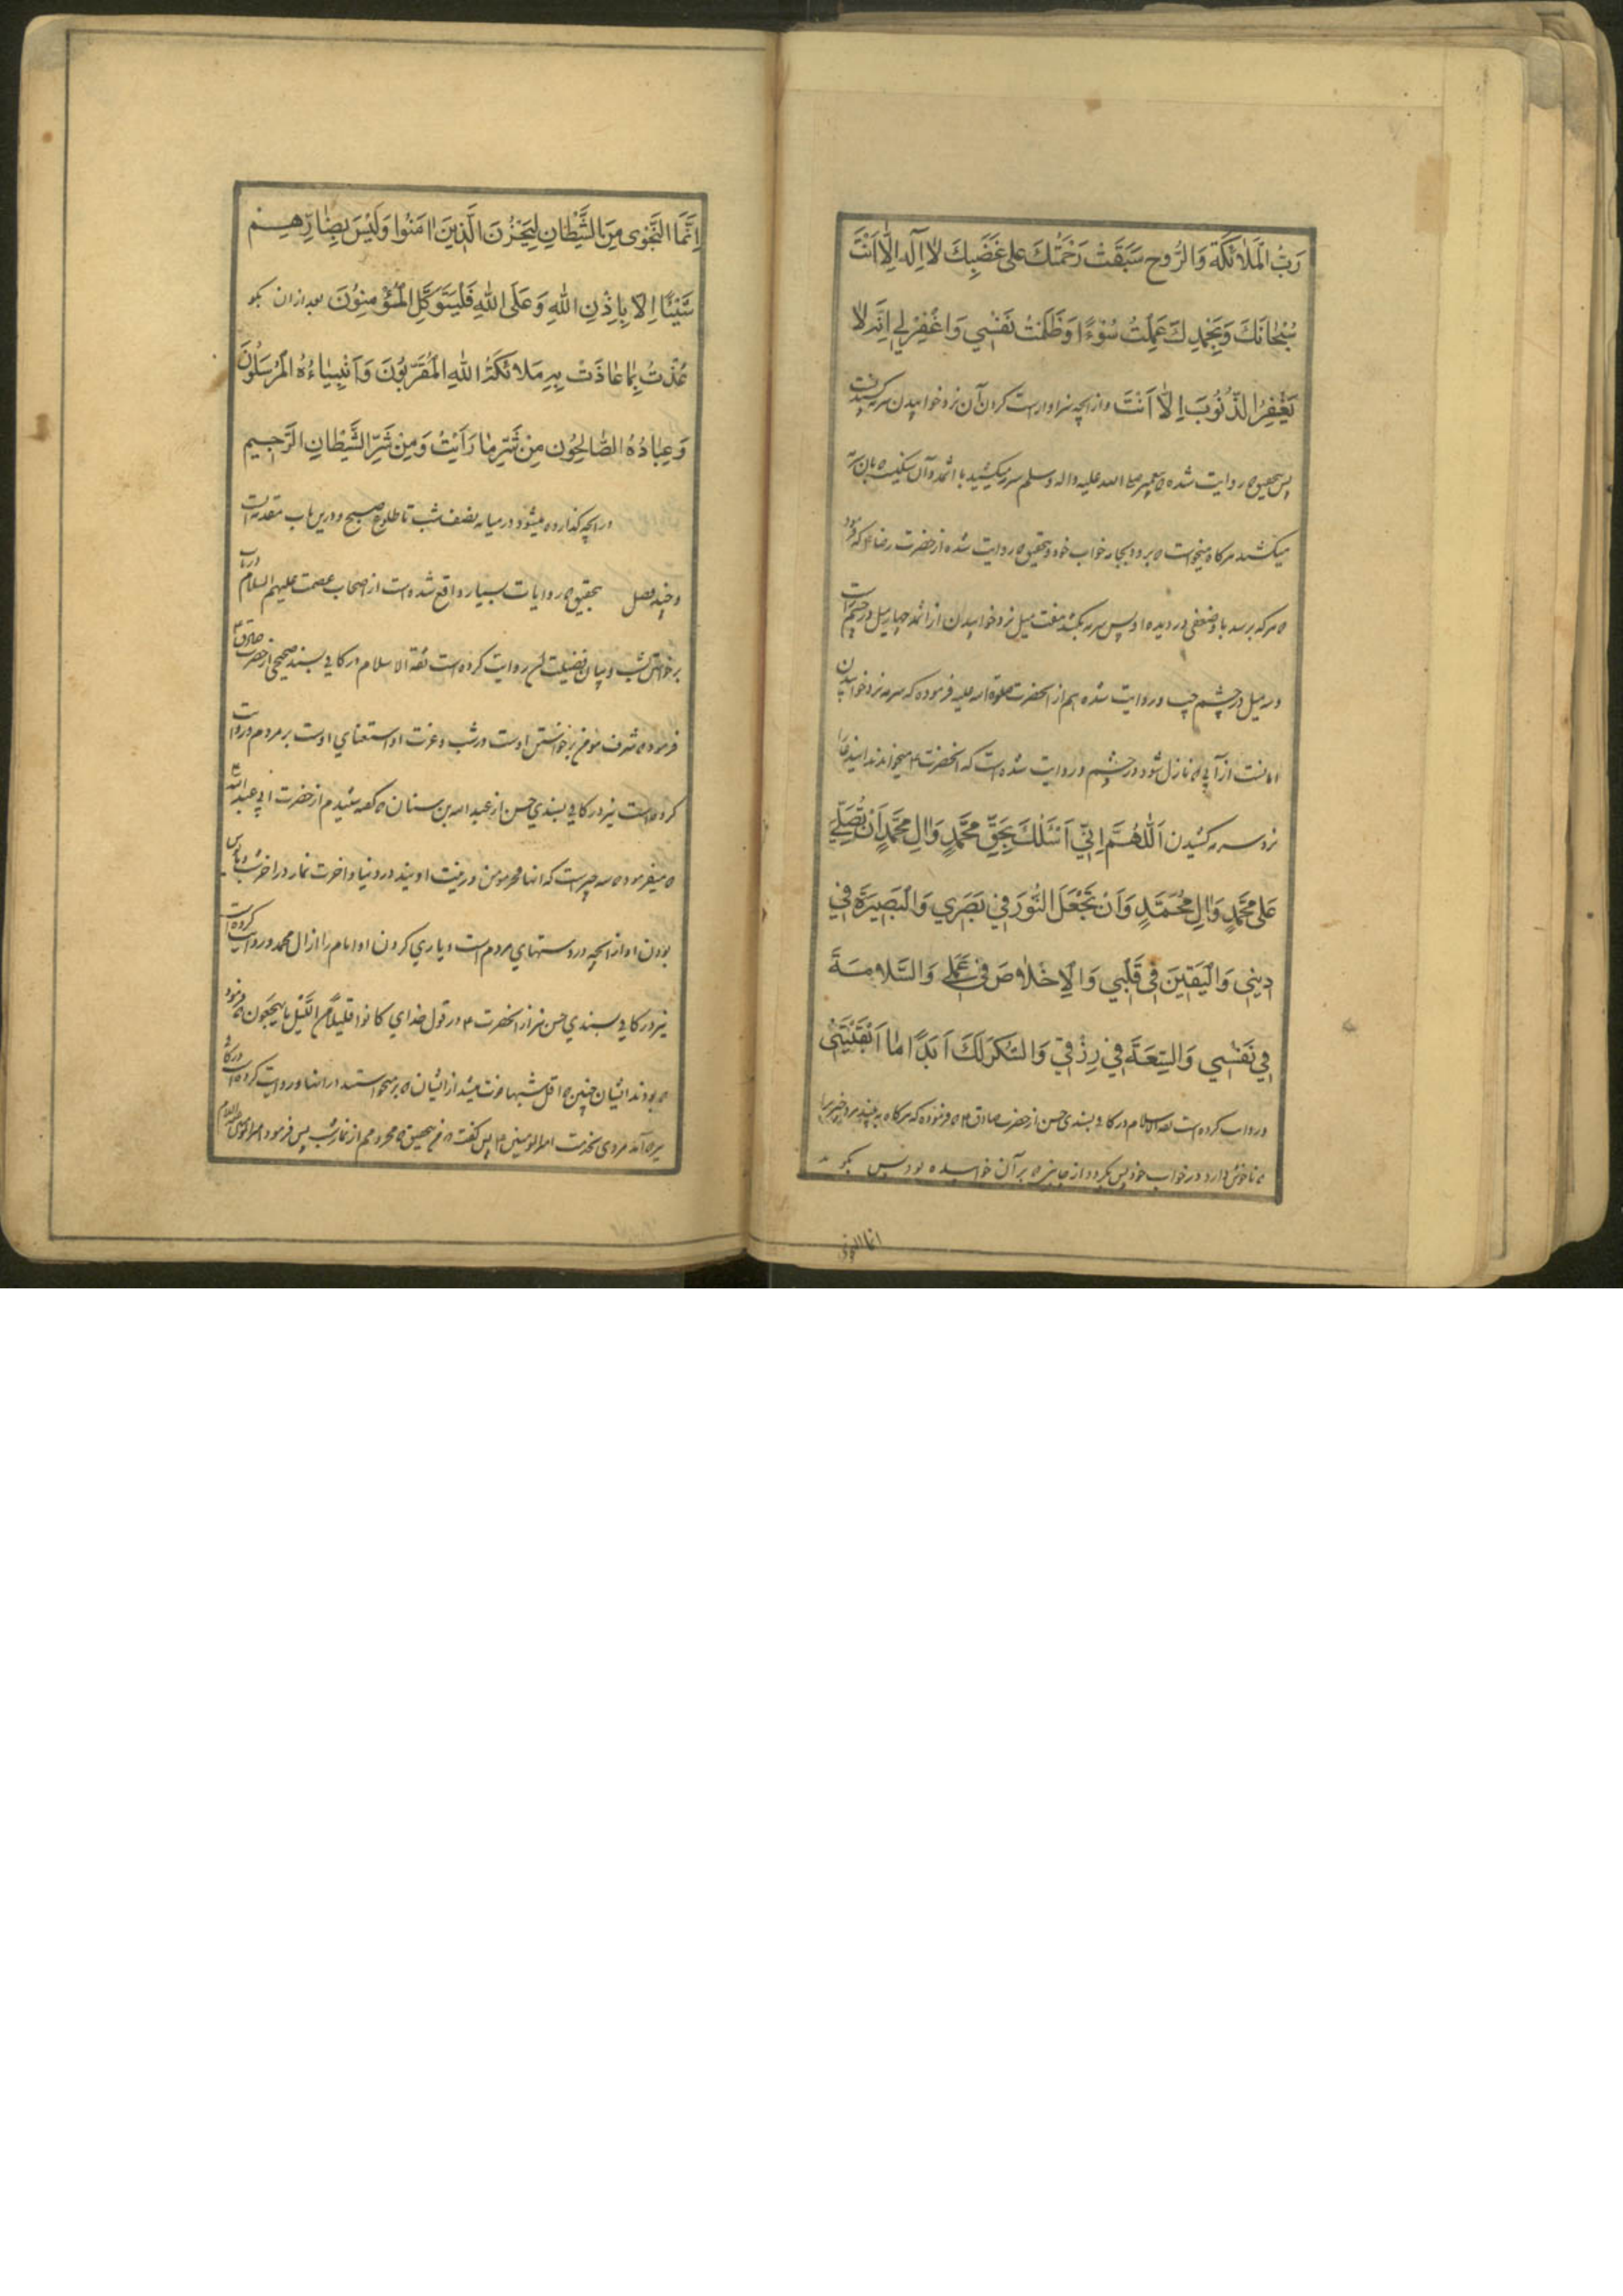 رَبُّ الْمَلٰائِكَةِ وَالرُّوحِ سَبَقَتْ رَحْمَتُكَ عَلىٰ غَضَبِكَ لاٰ اِلٰهَ اِلّاٰ اَنْتَ
سُبْحٰانَكَ وَبِحَمْدِكَ عَمِلْتُ سُوْءًا وَظَلَمْتُ نَفْسِي وَاغْفِرْلِي اِنَّهُ لاٰ
يَغْفِرُ الذُّنُوبَ اِلّاٰ اَنْتَ و از انچه سزاوارست کردن آن نزد خوابیدن سرمه کشیدنست
پس بتحقیق که روایت شده که پیغمبر صلی الله علیه واله وسلم سرمه میکشید باثمد و آن سنکیست که بان سرمه
میکشند هرکاه میخواست که برود بجامه خواب خود و بتحقیق که روایت شده از حضرت رضا ع که فرمود
که هرکه برسد باو ضعفی در دیده او پس سرمه بکشد هفت میل نزد خوابیدن از اثمد چهار میل در چشم راست
و سه میل در چشم چپ و روایت شده هم از انحضرت صلوة الله علیه فرموده که سرمه نزد خوابیدن
امانست از آبی که نازل شود در چشم و روایت شده است که انحضرت ع میخواندند این دعا را
نزد سرمه کشیدن اَللّٰهُمَّ اِنّي اَسْئَلُكَ بِحَقِّ مُحَمَّدٍ وَاٰلِ مُحَمَّدٍ اَنْ تُصَلِّيَ
عَلىٰ مُحَمَّدٍ وَاٰلِ مُحَمَّدٍ وَاَنْ تَجْعَلَ النُّورَ في بَصَري وَالْبَصيرَةَ في
ديني وَالْيَقينَ في قَلْبي وَالْاِخْلٰاصَ في عَمَلي وَالسَّلٰامَةَ
في نَفْسي وَالسَّعَةَ في رِزْقي وَالشُّكْرَ لَكَ اَبَدًا مٰا اَبْقَيْتَني
و روایت کرده است ثقة الاسلام در کافی بسندی حسن از حضرت صادق ع که فرموده که هرکاه به بیند مرد چیزیرا
که ناخوش دارد در خواب خود پس بکردد از جانبی که بر آن خوابیده بود پس بکوید
انما النجوی
اِنَّمَا النَّجْوىٰ مِنَ الشَّيْطٰانِ لِيَحْزُنَ الَّذينَ اٰمَنُوا وَلَيْسَ بِضٰارِّهِمْ
شَيْئًا اِلّاٰ بِاِذْنِ اللهِ وَعَلَى اللهِ فَلْيَتَوَكَّلِ الْمُؤْمِنُونَ بعد از ان بکو
عُذْتُ بِمٰا عٰاذَتْ بِهِ مَلٰائِكَةُ اللهِ الْمُقَرَّبُونَ وَاَنْبِيٰاءُهُ الْمُرْسَلُونَ
وَعِبٰادُهُ الصّٰالِحُونَ مِنْ شَرِّ مٰا رَاَيْتُ وَمِنْ شَرِّ الشَّيْطٰانِ الرَّجيمِ
در انچه کذارده میشود در میانه نصف شب تا طلوع صبح و درین باب مقدمه است
و چند فصل بتحقیق که روایات بسیار واقع شده است از اصحاب عصمت علیهم السلام در باب
برخواستن شب و بیان فضیلت ان روایت کرده است ثقة الاسلام در کافی بسند صحیح از حضرت صادق ع
فرموده شرف مومن برخواستن اوست در شب و عزت او استغنای اوست بر مردم و روایت
کرده است نیز در کافی بسندی حسن از عبد الله بن سنان که کفته شنیدم از حضرت ابی عبد الله ع
که میفرموده سه چیز است که انها فخر مومن و زینت اویند در دنیا و اخرت نماز در اخر شب و مایوس
بودن او از انچه در دستهای مردم است و یاری کردن او امام را از ال محمد و روایت کرده است
نیز در کافی بسندی حسن نیز از انحضرت ع در قول خدای کانوا قلیلًا من اللیل ما یهجعون که فرمود
که بودند ایشان چنین که اقل شبها فوت میشد از ایشان که برنمیخواستند در انها و روایت کرده است در کافی
آمد مردی بخدمت امیر المومنین ع پس کفت که من بتحقیق که محرومم از نماز شب پس فرمود امیر المومنین علیه السلام